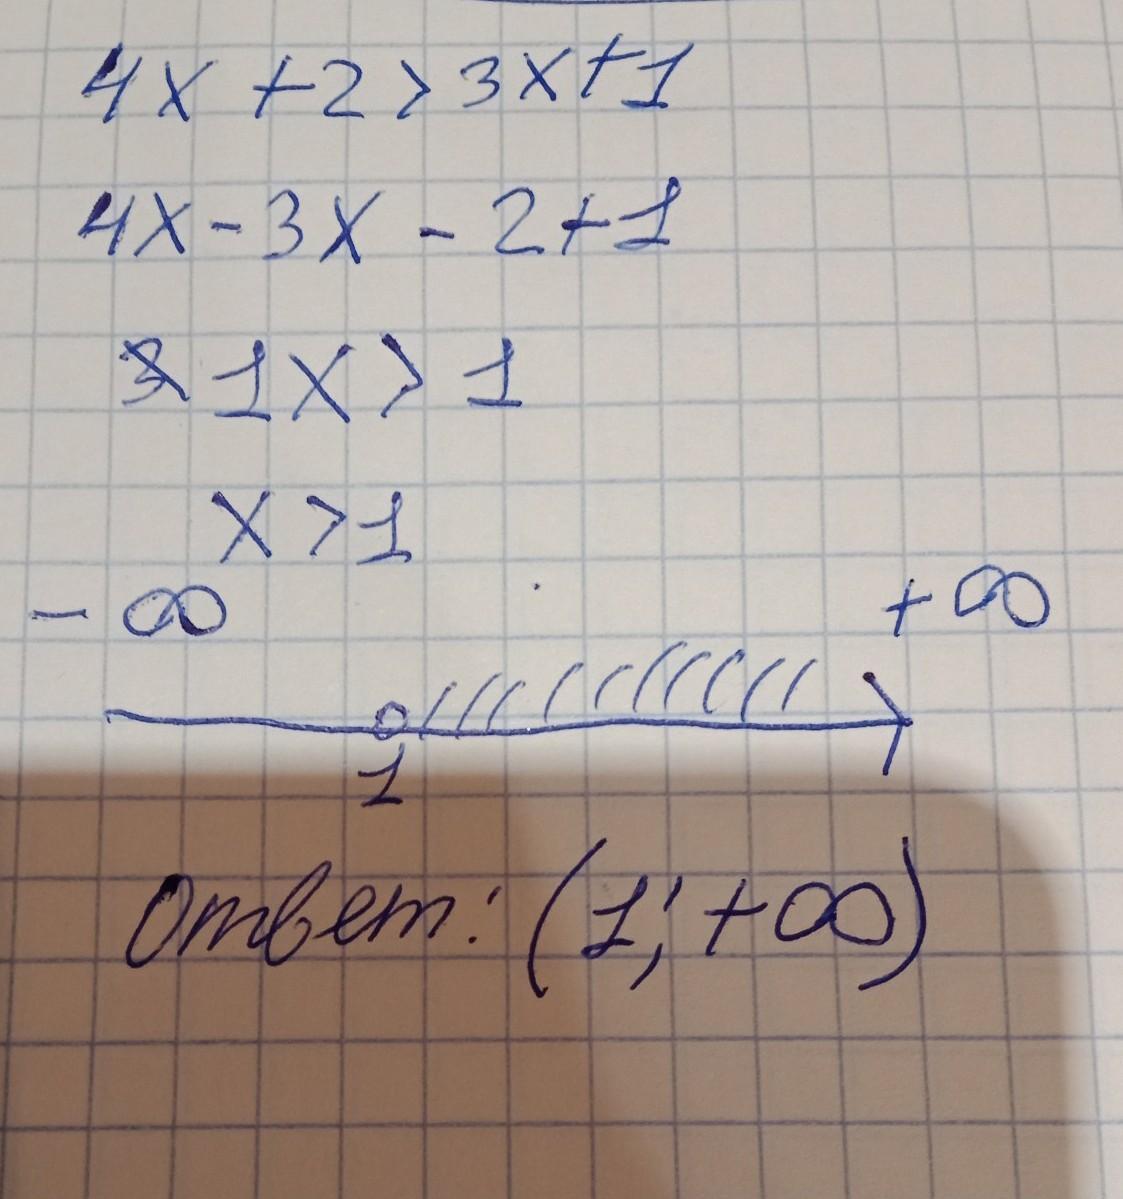 4x + 2 > 3x + 1
4x - 3x - 2 + 1
1x > 1
x > 1
- ∞ + ∞
1
Ответ: (1; +∞)